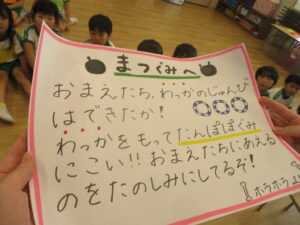 まつぐみへ
おまえたち、わっかのじゅんび
はできたか!
わっかをもってたんぽぽぐみ
にこい!!おまえたちにあえる
のをたのしみにしてるぞ!
ホラホラより